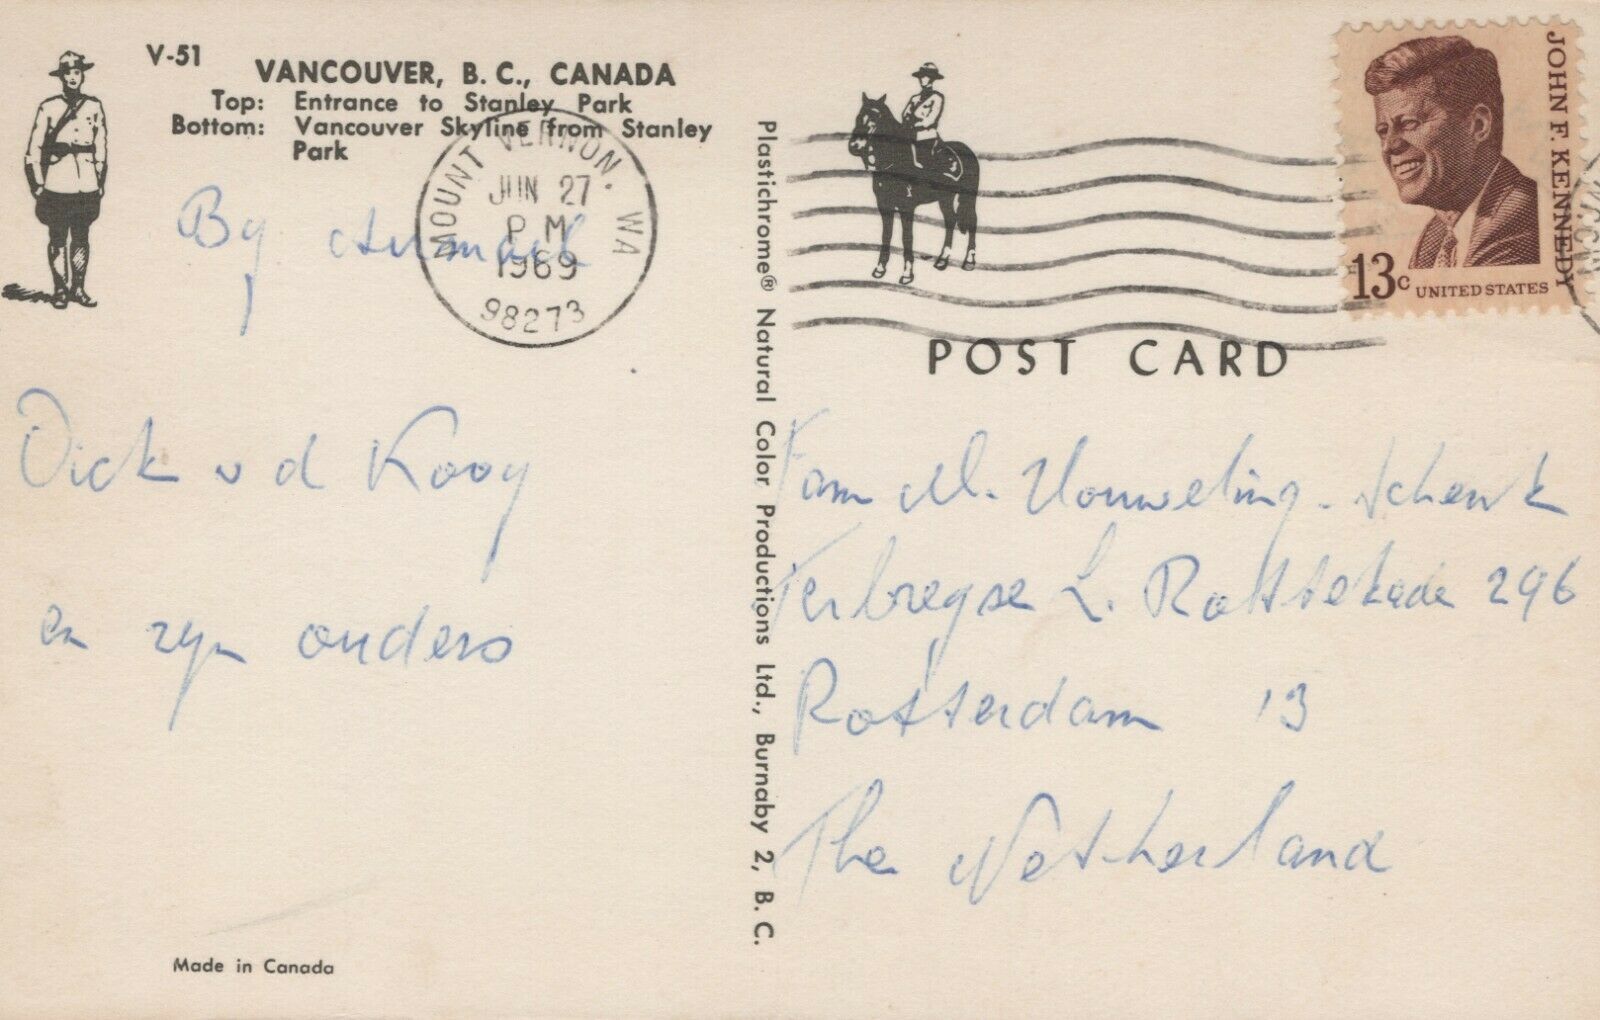 V-51
VANCOUVER, B. C., CANADA
Top: Entrance to Stanley Park
Bottom: Vancouver Skyline from Stanley
Park
By Airmail
MOUNT VERNON. WA
JUN 27
P M
1969
98273
Dick v d Kooy
en zyn ouders
Made in Canada
Plastichrome® Natural Color Productions Ltd., Burnaby 2, B. C.
JOHN F. KENNEDY
13c UNITED STATES
POST CARD
Fam M. Houweling-Schenk
Terbregse L. Rottekade 296
Rotterdam 13
The Netherland